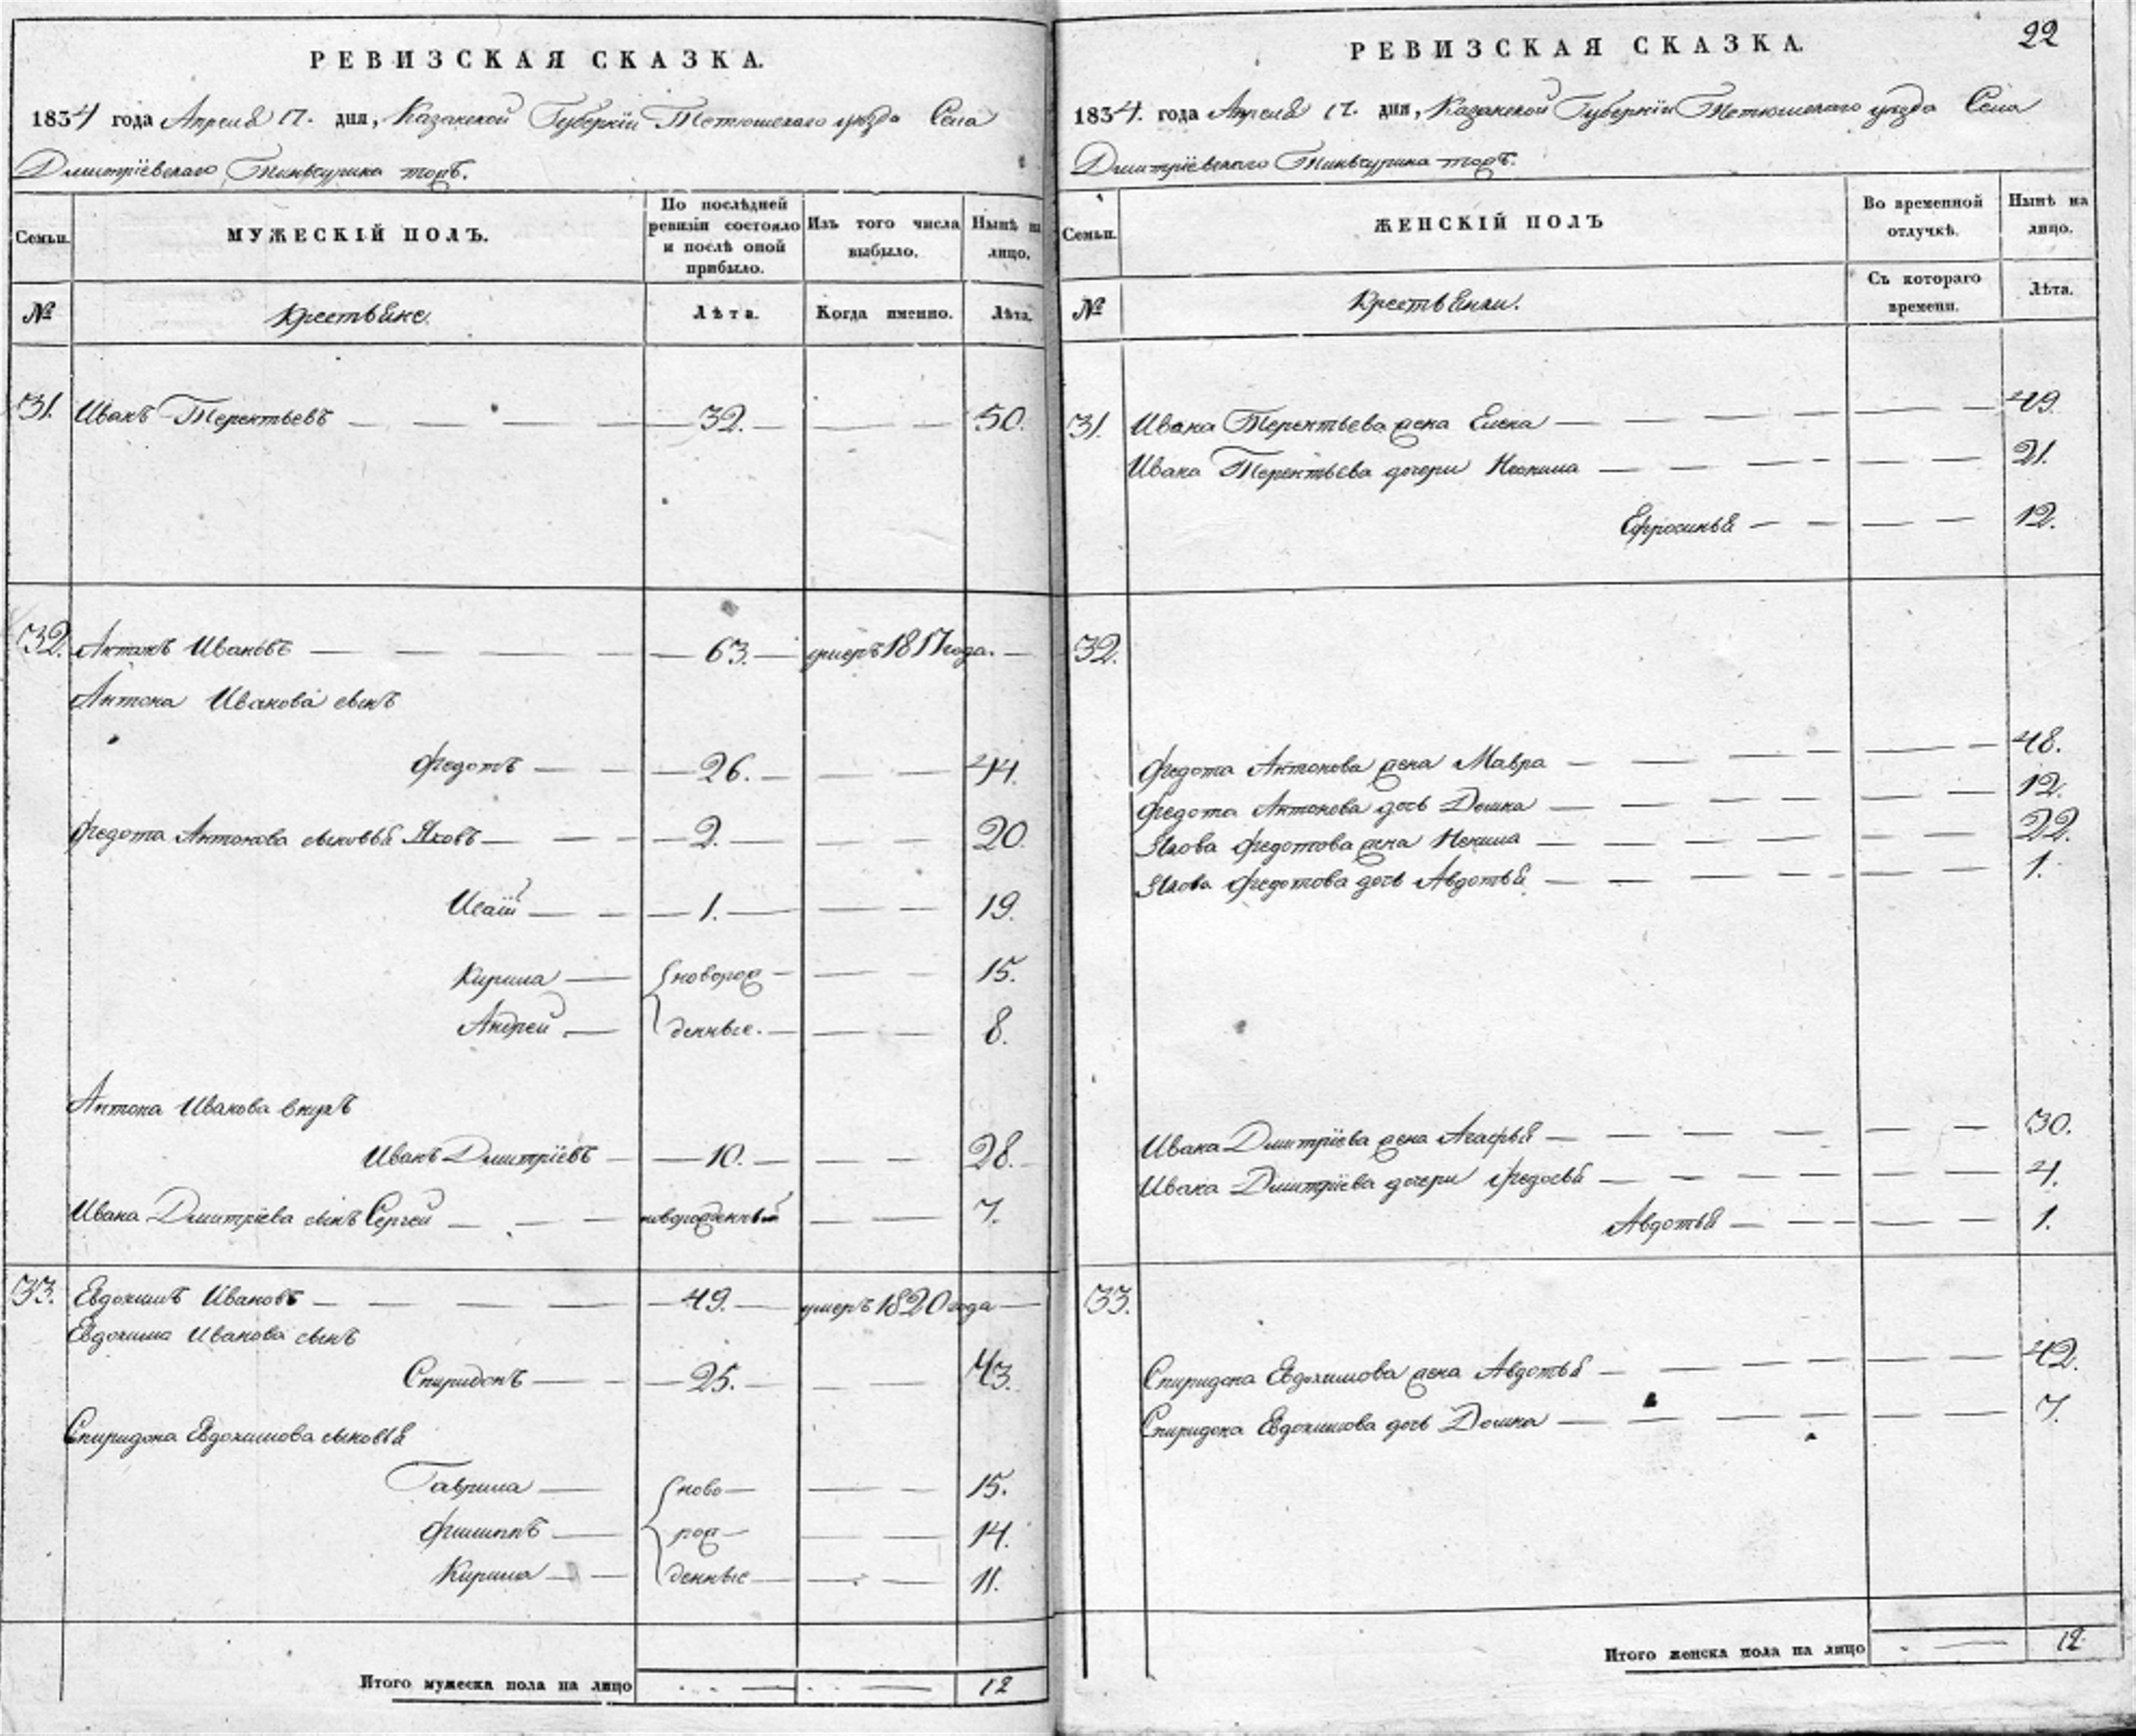 РЕВИЗСКАЯ СКАЗКА.
1834 года Апреля 17. дня, Казанской Губернїи Тетюшскаго уезда Села
Дмитрїевскаго тожъ.
Семьи. МУЖЕСКІЙ ПОЛЪ. По послѣдней ревизіи состояло и послѣ оной прибыло. Изъ того числа выбыло. Нынѣ на лицо.
№ Крестьяне. Лѣта. Когда именно. Лѣта.
31. Иванъ Терентьевъ 32. 50.
32. Антонъ Ивановъ 63. умеръ 1817 года.
Антона Иванова сынъ
Федотъ 26. 44.
Федота Антонова сыновья Яковъ 2. 20.
Исай 1. 19.
Кирила новорож 15.
Андрей денные. 8.
Антона Иванова внукъ
Иванъ Дмитрїевъ 10. 28.
Ивана Дмитрїева сынъ Сергей новорожденный 7.
33. Евдокимъ Ивановъ 49. умеръ 1820 года
Евдокима Иванова сынъ
Спиридонъ 25. 43.
Спиридона Евдокимова сыновья
Гаврила ново 15.
Филиппъ рож 14.
Кирила денные 11.
Итого мужеска пола на лицо 12
22
РЕВИЗСКАЯ СКАЗКА.
1834. года Апреля 17. дня, Казанской Губернїи Тетюшскаго уезда Села
Дмитрїевскаго тожъ.
Семьи. ЖЕНСКІЙ ПОЛЪ Во временной отлучкѣ. Нынѣ на лицо.
№ Крестьянки. Съ котораго времени. Лѣта.
31. Ивана Терентьева жена Елена 49.
Ивана Терентьева дочери 21.
Ефросинья 12.
32.
Федота Антонова жена Мавра 48.
Федота Антонова дочь Домна 12.
Якова Федотова жена 22.
Якова Федотова дочь Авдотья 1.
Ивана Дмитрїева жена Агафья 30.
Ивана Дмитрїева дочери Федосья 4.
Авдотья 1.
33.
Спиридона Евдокимова жена Авдотья 42.
Спиридона Евдокимова дочь Домна 7.
Итого женска пола на лицо 12